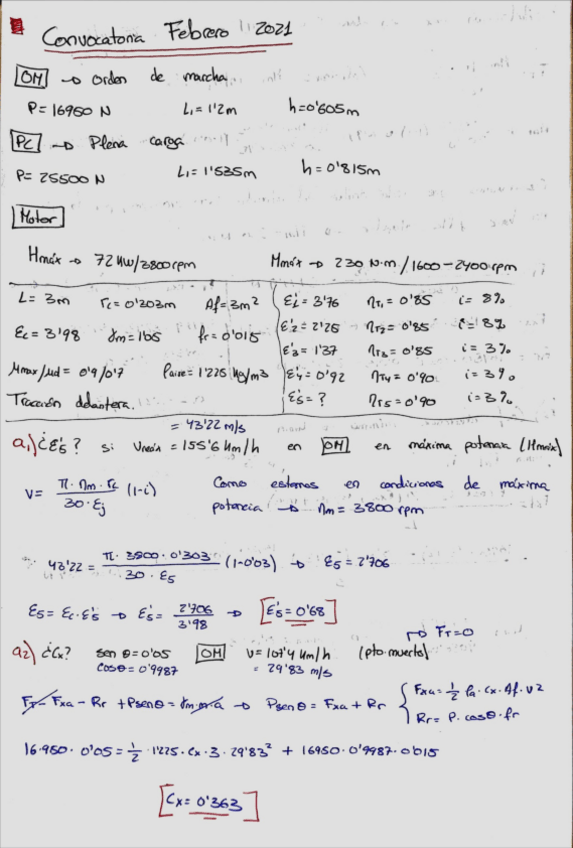 Convocatoria Febrero 2021
OM → Orden de marcha
P = 16950 N L₁ = 1'2m h = 0'605m
PC → Plena carga
P = 25500 N L₁ = 1'535m h = 0'815m
Motor
Hmáx → 72 kW/3800rpm Mmáx → 230 N·m / 1600-2400rpm
L = 3m rc = 0'303m Af = 3m² ε'₁ = 3'76 ηT₁ = 0'85 i = 8%
εc = 3'98 γm = 1'05 fr = 0'015 ε'₂ = 2'25 ηT₂ = 0'85 i = 8%
ε'₃ = 1'37 ηT₃ = 0'85 i = 3%
μmax/μd = 0'9/0'7 ρaire = 1'225 kg/m³ ε'₄ = 0'92 ηT₄ = 0'90 i = 3%
Tracción delantera. ε'₅ = ? ηT₅ = 0'90 i = 3%
= 43'22 m/s
a₁) ¿ε'₅? si Vmáx = 155'6 km/h en OM en máxima potencia (Hmáx)
V = π · nm · rc / 30 · εj (1-i) Como estamos en condiciones de máxima
potencia → nm = 3800 rpm
43'22 = π · 3800 · 0'303 / 30 · ε₅ (1-0'03) → ε₅ = 2'706
ε₅ = εc · ε'₅ → ε'₅ = 2'706 / 3'98 → [ε'₅ = 0'68]
→ FT = 0
a₂) ¿Cx? sen θ = 0'05 OM V = 107'4 km/h (pto. muerto)
cos θ = 0'9987 = 29'83 m/s
FT - Fxa - Rr + Psenθ = γm·m·a → Psenθ = Fxa + Rr { Fxa = 1/2 ρa · Cx · Af · V²
Rr = P · cosθ · fr
16.950 · 0'05 = 1/2 · 1'225 · Cx · 3 · 29'83² + 16950 · 0'9987 · 0'015
[Cx = 0'363]